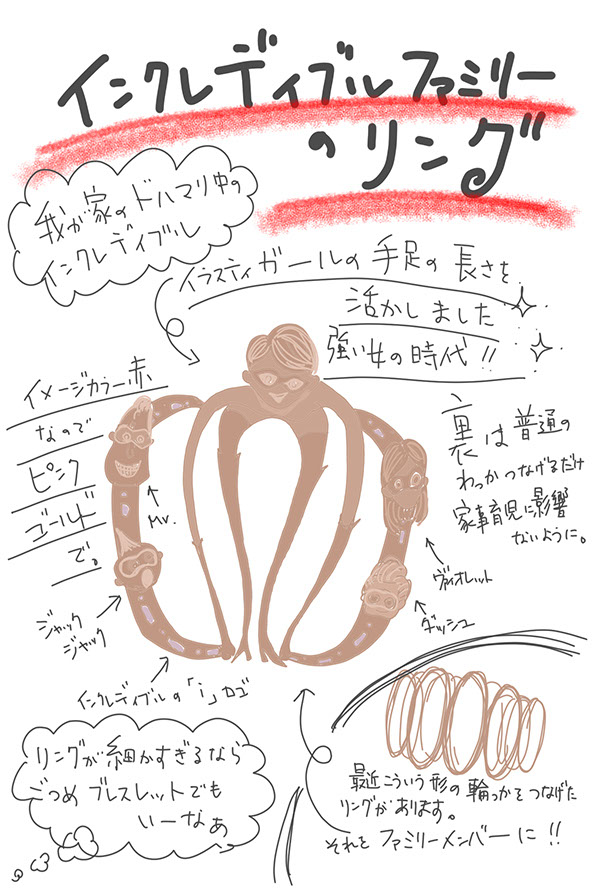 インクレディブルファミリー
のリング
我が家のドハマリ中の
インクレディブル
イラスティガールの手足の長さを
活かしました
強い女の時代!!
イメージカラー赤
なので
ピンク
ゴールド
で。
裏は普通の
わっかつなげるだけ
家事育児に影響
ないように。
Mr.
ヴァイオレット
ジャック
ジャック
ダッシュ
インクレディブルの「i」カゴ
リングが細かすぎるなら
ごつめブレスレットでも
いーなぁ
最近こういう形の輪っかをつなげた
リングがあります。
それをファミリーメンバーに!!